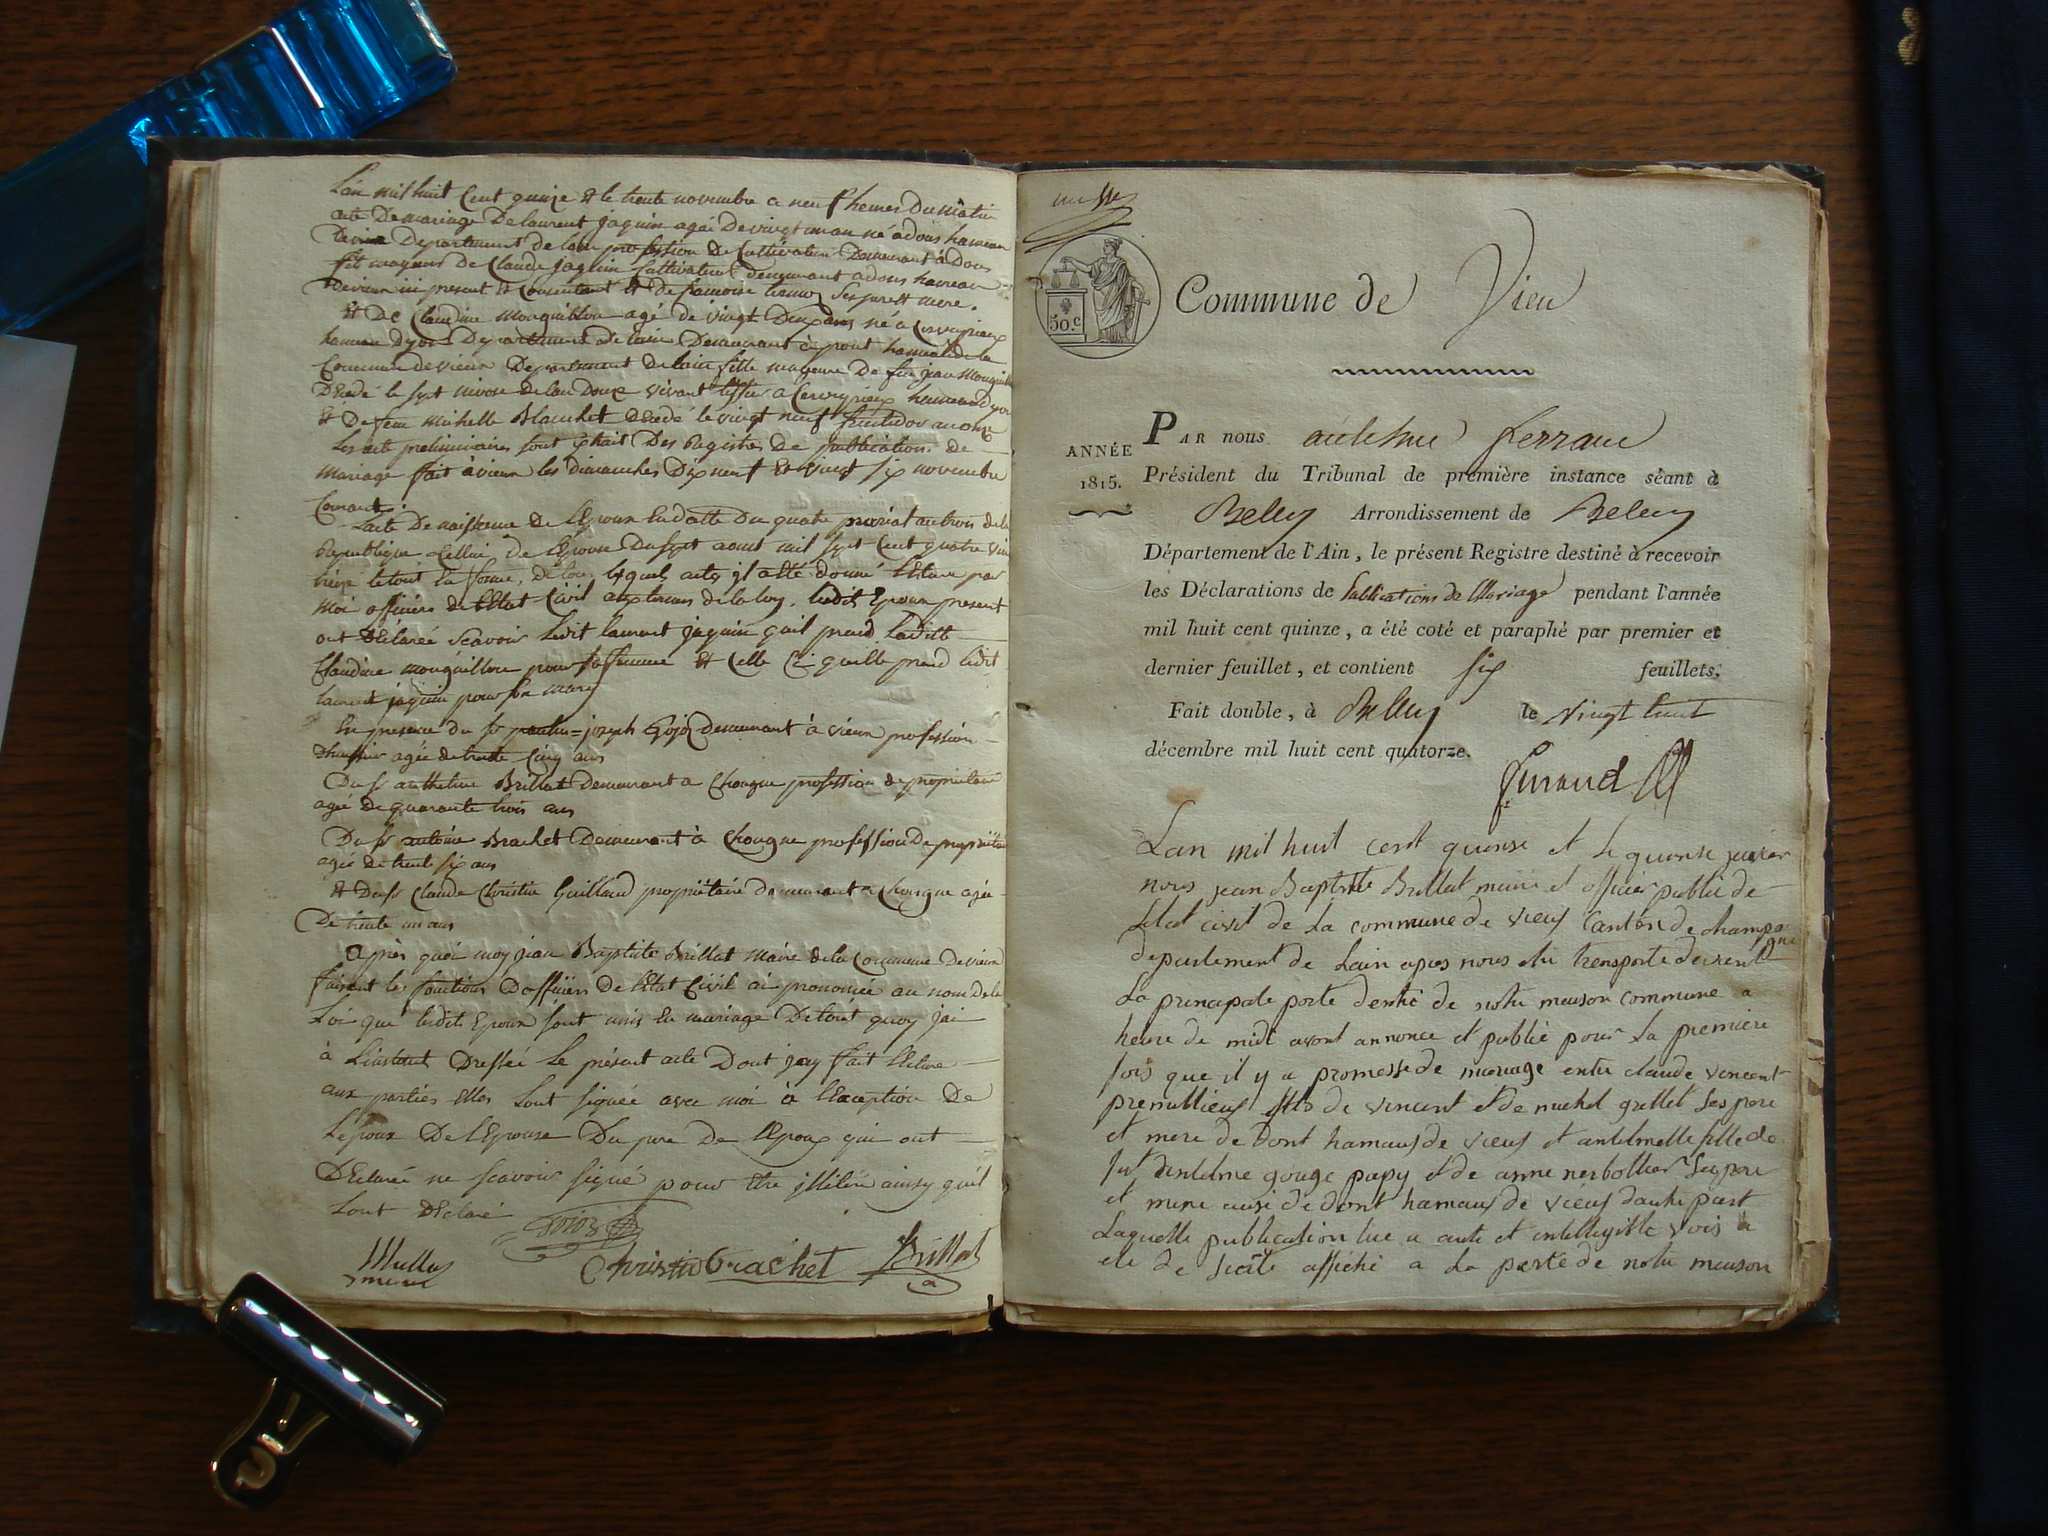 Lan mil huit Cent quinze et le trente novembre a neuf heures Du matin
acte De mariage De laurent jaquin agé De vingt un an né a dons hameau
Devieu Departement de lain profession De Cultivateur Demeurant à Dons
fils mayeur De Claude jaquin Cultivateur demeurant a dons hameau
Devieu ici present et Consentant et de francoise ses pere et mere.
et De Claudine mouguillon agé de vingt Deux ans né a Cerveyrieu
hameau Departement de lain Demeurant à pont hameau de la
Commune de vieux Departement de lain fille mayeure De feu jean
Décédé le sept nivose de lan Douze vivant a Cerveyrieu hameau
et De feue michelle Blanchet décédé le vingt neuf fructidor an onze
Les acte preliminaires sont Des Registre de publication de
mariage fait à vieux les dimanches Dix neuf et vingt six novembre
Courant.
Lacte De naissance de lEpoux En datte Du quatre prairial an trois de la
Republique Celluy de lEpouse Du sept aout mil sept Cent quatre vin
treize le tout En forme, de lesquels actes il a été donné lecture par
moi officier de lEtat Civil aux termes de la loy. Lesdits Epoux present
ont Déclarée scavoir Ledit laurent jaquin quil prend Laditte
Claudine mouguillon pour sa femme et Celle Ci quelle prend ledit
laurent jaquin pour son mary
En presence du Sr joseph Gojoz Demeurant à vieux profession
Dhuissier agée de trente Cinq ans
Du Sr anthelme Brillat Demeurant a Chongne profession de propriétaire
agée De quarante trois ans
Du Sr antoine Brachet Demeurant à Chongne profession De propriétaire
agée de trente six ans
et Du Sr Claude Christin Guillaud propriétaire demeurant a Chongne agée
De trente un ans
après quoi moy jean Baptiste Brillat Maire de la Commune De vieux
faisant les fonctions Dofficiers de lEtat Civil ai prononcée au nom De la
Loi que lesdits Epoux sont unis En mariage De tout quoy jai
à linstant Dressée Le présent acte Dont jay fait lecture
aux parties Elles Lont signée avec moi à lException De
Lépoux De lEpouse Du pere De lEpoux qui ont
Déclarée ne scavoir signé pour être illitéré ainsy quil
Lont déclaré
Christin Brachet Brillat
Commune de Vieu
50.c
ANNÉE
1815.
PAR nous antelme ferrand
Président du Tribunal de première instance séant à
Belley Arrondissement de Belley
Département de l'Ain, le présent Registre destiné à recevoir
les Déclarations de Publications de Mariage pendant l'année
mil huit cent quinze, a été coté et paraphé par premier et
dernier feuillet, et contient six feuillets.
Fait double, à Belley le vingt huit
décembre mil huit cent quatorze.
ferrand
Lan mil huit cent quinse et le quinse janvier
nous jean Baptiste Brillat maire et officier public de
létat civil de La commune de vieux canton de champagne
departement de Lain apres nous etre transporté devent
La principale porte dentré de notre maison commune a
heure de midi avont annoncé et publié pour La premiere
fois que il y a promesse de mariage entre claude vincent
premillieux fils de vincent et de michel grillet ses pere
et mere de Dont hameaux de vieux et antelmette fille de
fut antelme gouge papy et de anne nerbollier ses pere
et mere aussi de dont hameaux de vieux dautre part
Laquelle publication lue a aute et intellegible vois a
ete de suite affiché a La porte de notre maison